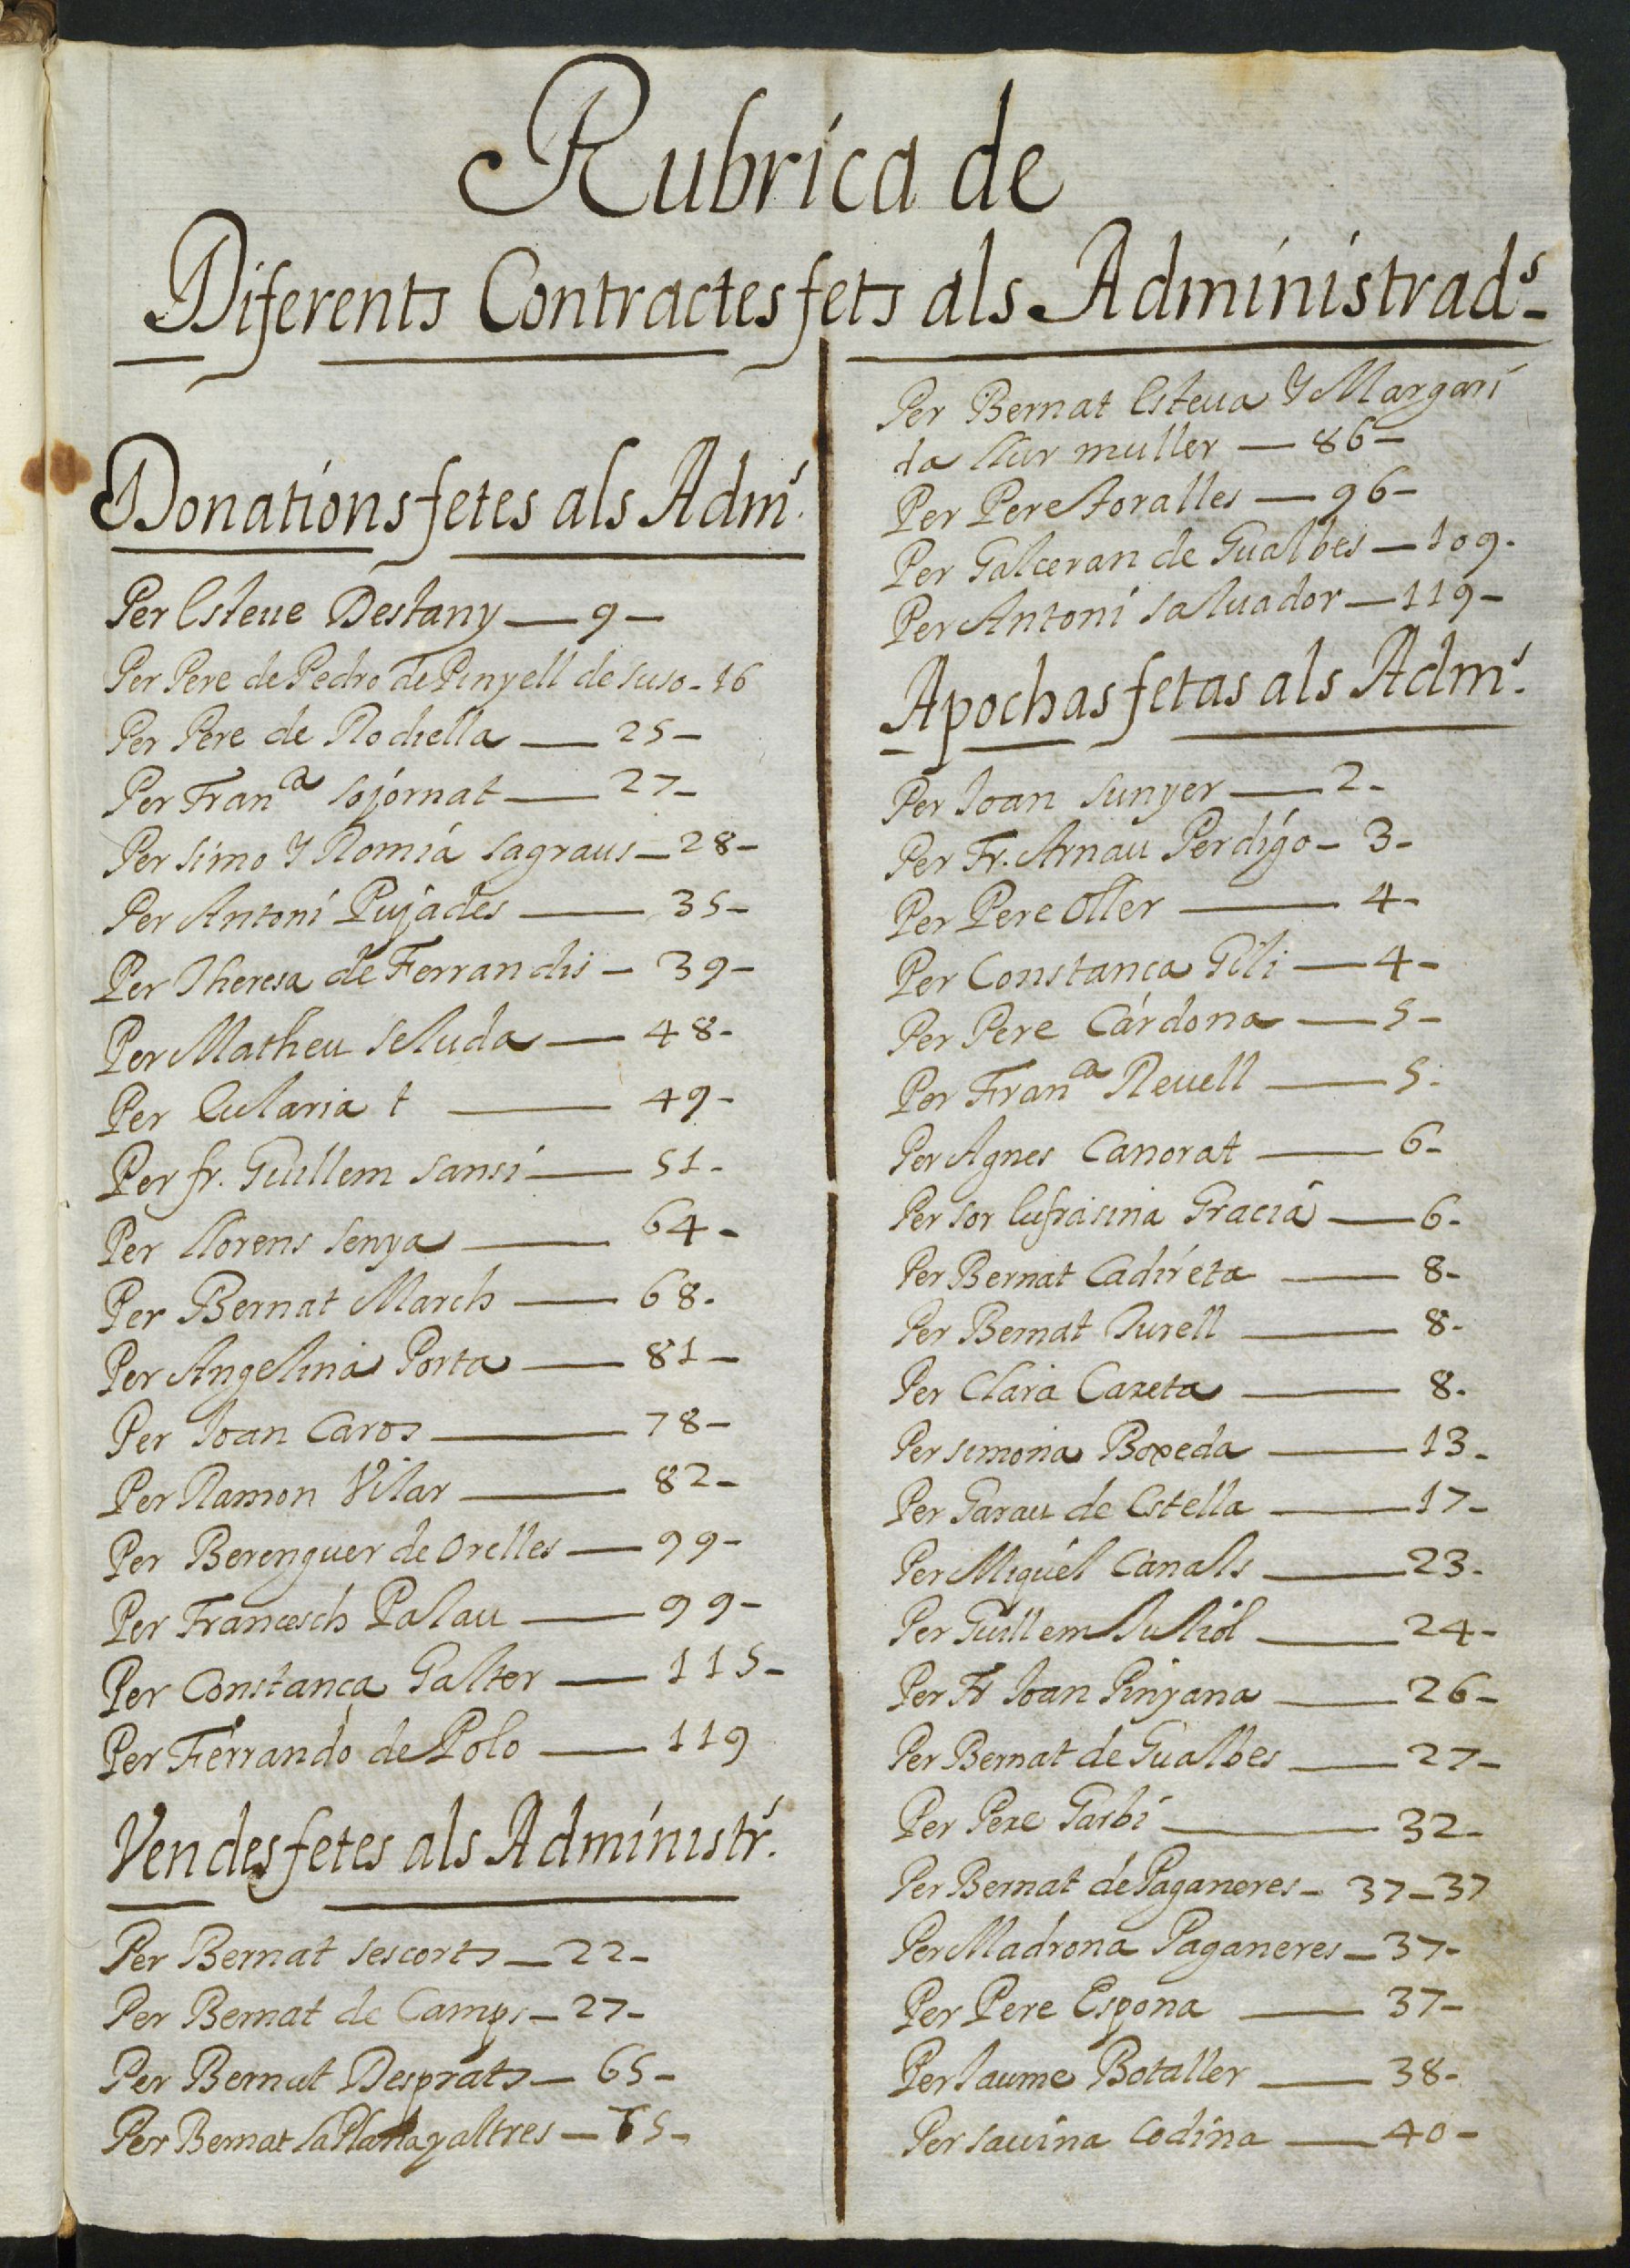 Rubrica de
Diferents Contractes fets als Administrad.s
Donations fetes als Adm.s
Per Esteue Destany — 9 —
Per Pere de Pedro de Pinyell de suso - 16
Per Pere de Rochella — 25 —
Per Fran.a sojornat — 27 —
Per simo Y Romiá sagraus — 28 —
Per Antoni Pujades — 35 —
Per Theresa de Ferrandis — 39 —
Per Matheu seluda — 48 -
Per Eularia t — 49 -
Per fr. Guillem sansi — 51 -
Per Llorens senya — 64 -
Per Bernat March — 68 .
Per Angelina Porta — 81 —
Per Joan Caros — 78 —
Per Ramon Vilar — 82 —
Per Berenguer de Orelles — 99 -
Per Francesch Palau — 99 -
Per Constança Galter — 115 -
Per Ferrando de Polo — 119
Vendes fetes als Administr.s
Per Bernat sescorts — 22 -
Per Bernat de Camps — 27 -
Per Bernat Desprats — 65 -
Per Bernat saPlana y altres —
Per Bernat Esteua Y Margari
da llur muller — 86 —
Per Pere Foralles — 96 —
Per Galceran de Gualbes — 109 .
Per Antoni saluador — 119 —
Apochas fetas als Adm.s
Per Joan sunyer — 2 -
Per Fr. Arnau Perdigo — 3 -
Per Pere Oller — 4 -
Per Constança Gili — 4 -
Per Pere Cardona — 5 -
Per Fran.a Reuell — 5 -
Per Agnes Canorat — 6 -
Per sor Eufrasina Graciá — 6 -
Per Bernat Cadireta — 8 -
Per Bernat Turell — 8 -
Per Clara Caxeta — 8 .
Per simona Boxeda — 13 -
Per Garau de Estella — 17 -
Per Miquel Canals — 23 -
Per Guillem Juliol — 24 -
Per Fr Joan Pinyana — 26 -
Per Bernat de Gualbes — 27 —
Per Pere Garbi — 32 -
Per Bernat de Paganeres — 37 — 37
Per Madrona Paganeres — 37 -
Per Pere Espona — 37 —
Per Jaume Botaller — 38 -
Per sauina Codina — 40 -